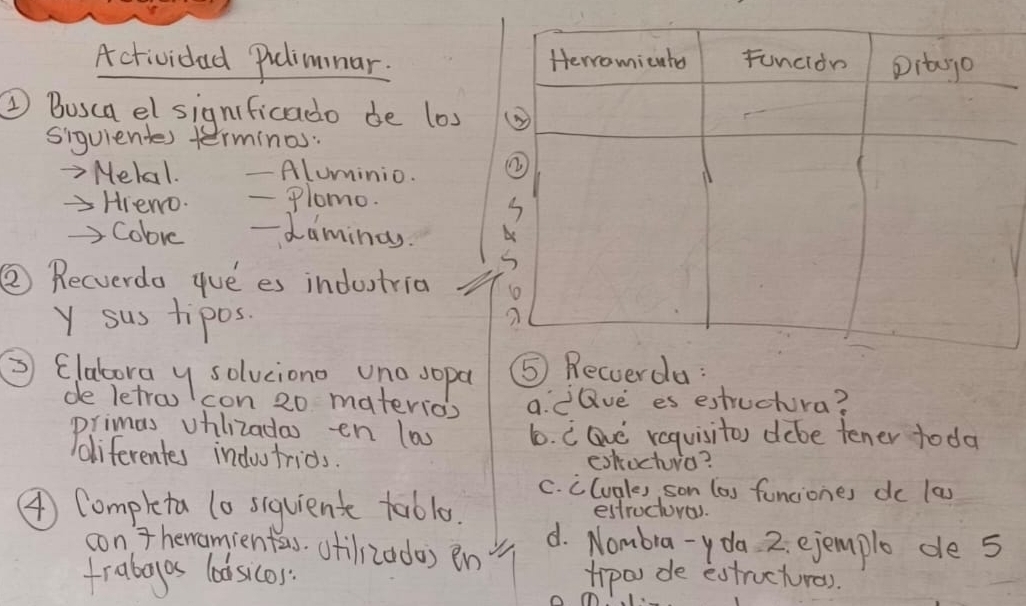 Actividad Preliminar.
① Busca el significado de los
siguientes términos:
→ Metal. — Aluminio.
→ Hierro. — Plomo.
→ Cobre — Láminas.
② Recuerda qué es industria
y sus tipos.
③ Elabora y soluciona una sopa
de letras con 20 materias
primas utilizadas en las
diferentes industrias.
④ Completa la siguiente tabla.
con 7 herramientas. utilizadas en
trabajos básicos:
Herramienta Función Dibujo
①
②
3
4
5
6
7
⑤ Recuerda:
a. ¿Qué es estructura?
b. ¿Qué requisitos debe tener toda
estructura?
c. ¿Cuales son las funciones de las
estructuras.
d. Nombra - y da 2. ejemplo de 5
tipos de estructuras.